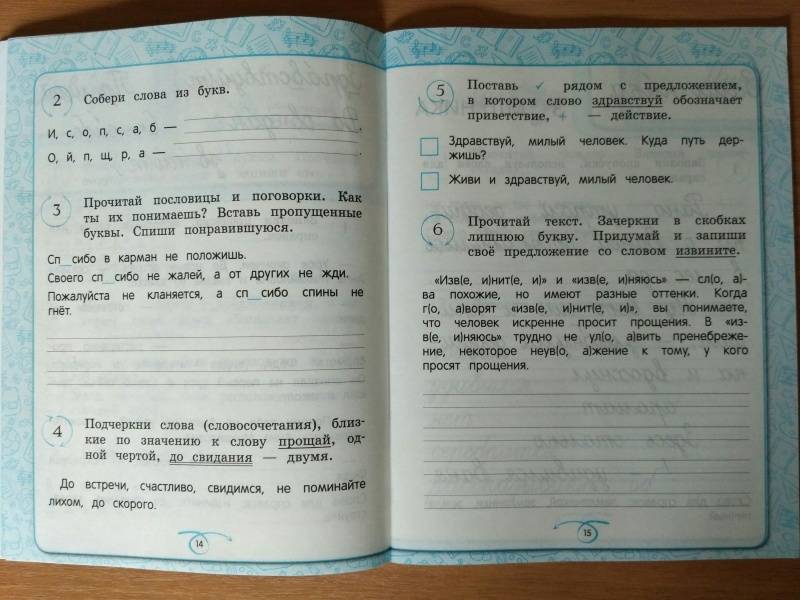 2 Собери слова из букв.
И, с, о, п, с, а, б —
О, й, п, щ, р, а —
3 Прочитай пословицы и поговорки. Как
ты их понимаешь? Вставь пропущенные
буквы. Спиши понравившуюся.
Сп_сибо в карман не положишь.
Своего сп_сибо не жалей, а от других не жди.
Пожалуйста не кланяется, а сп_сибо спины не
гнёт.
4 Подчеркни слова (словосочетания), близ-
кие по значению к слову прощай, од-
ной чертой, до свидания — двумя.
До встречи, счастливо, свидимся, не поминайте
лихом, до скорого.
14
5 Поставь ✓ рядом с предложением,
в котором слово здравствуй обозначает
приветствие, + — действие.
Здравствуй, милый человек. Куда путь дер-
жишь?
Живи и здравствуй, милый человек.
6 Прочитай текст. Зачеркни в скобках
лишнюю букву. Придумай и запиши
своё предложение со словом извините.
«Изв(е, и)нит(е, и)» и «изв(е, и)няюсь» — сл(о, а)-
ва похожие, но имеют разные оттенки. Когда
г(о, а)ворят «изв(е, и)нит(е, и)», вы понимаете,
что человек искренне просит прощения. В «из-
в(е, и)няюсь» трудно не ул(о, а)вить пренебреже-
ние, некоторое неув(о, а)жение к тому, у кого
просят прощения.
15